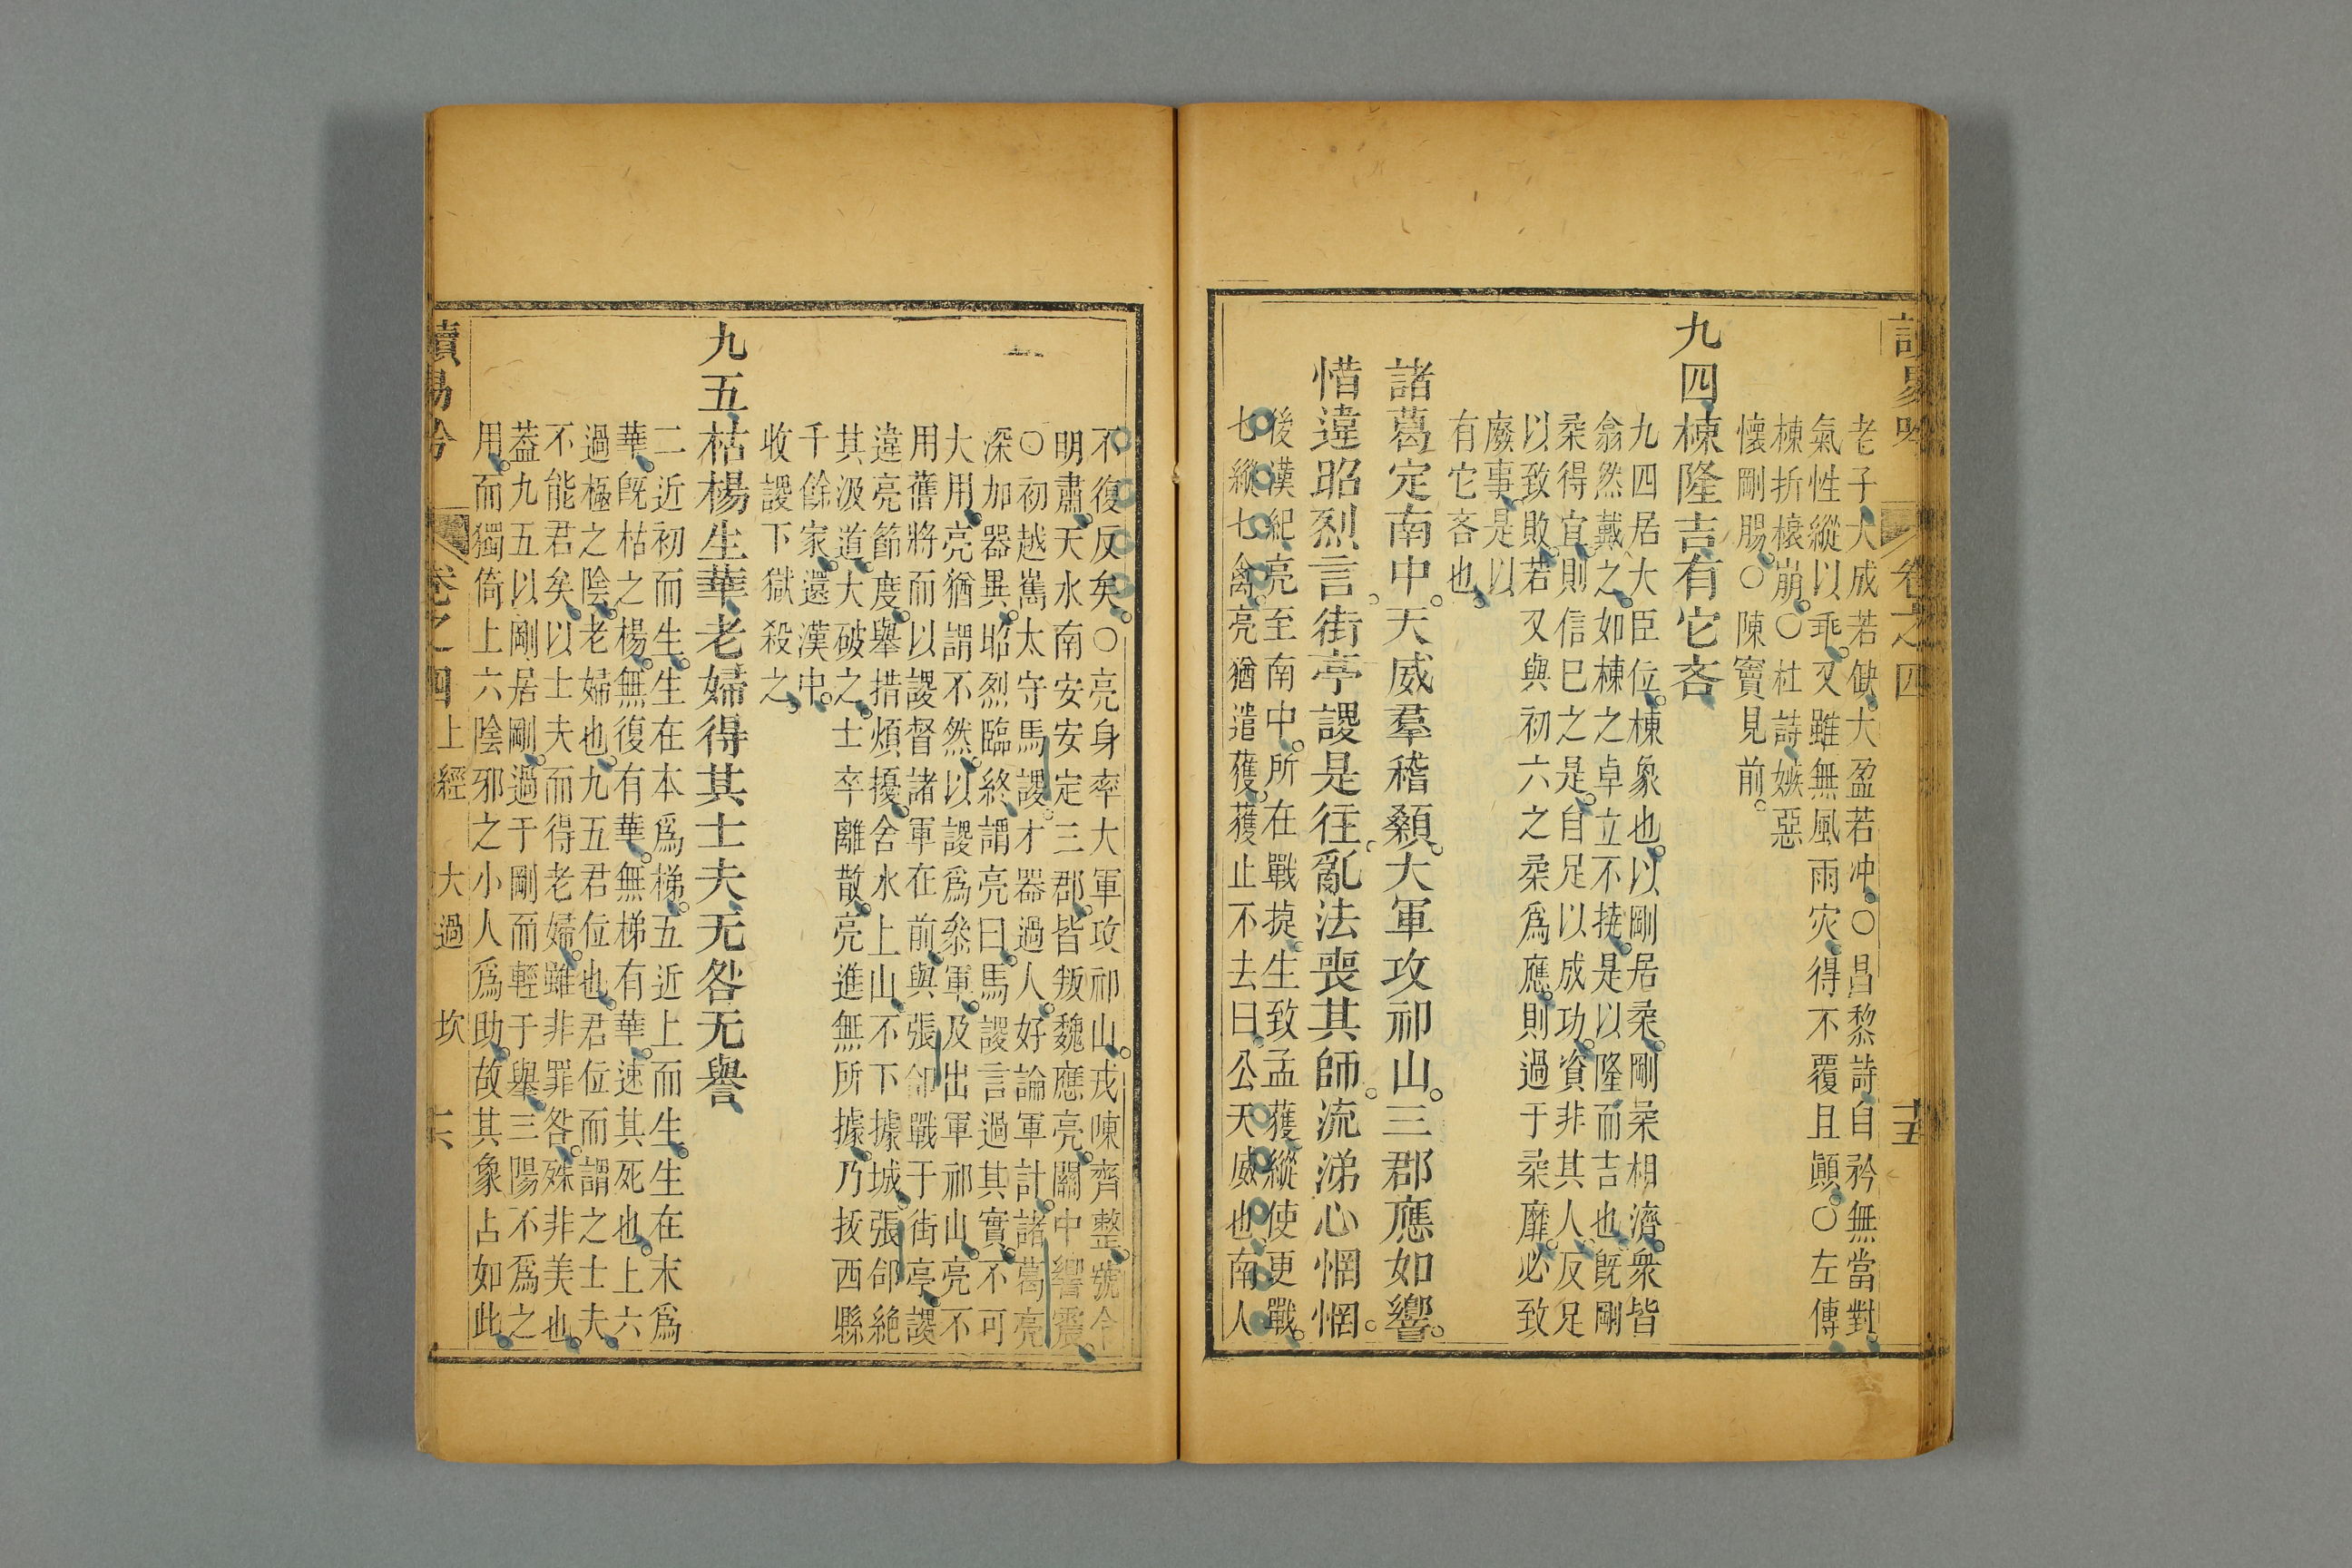 卷之四
老子大成若缺大盈若冲○昌黎詩自矜無當對
氣性縱以乖又雖無風雨灾得不覆且顚○左傳
棟折榱崩○杜詩嫉惡
懷剛腸○陳竇見前
九四棟隆吉有它吝
九四居大臣位棟象也以剛居柔剛柔相濟衆皆
翕然戴之如棟之卓立不撓是以隆而吉也旣剛
柔得宜則信巳之是自足以成功資非其人反足
以致敗若又與初六之柔爲應則過于柔靡必致
廢事是以
有它吝也
諸葛定南中天威羣稽顙大軍攻祁山三郡應如響
惜違昭烈言街亭謖是往亂法喪其師流涕心惘惘
後漢紀亮至南中所在戰捷生致孟獲縱使更戰
七縱七禽亮猶遣獲獲止不去曰公天威也南人
不復反矣○亮身率大軍攻祁山戎陳齊整號令
明肅天水南安安定三郡皆叛魏應亮關中響震
○初越嶲太守馬謖才器過人好論軍計諸葛亮
深加器異昭烈臨終謂亮曰馬謖言過其實不可
大用亮猶謂不然以謖爲叅軍及出軍祁山亮不
用舊將而以謖督諸軍在前與張郃戰于街亭謖
違亮節度舉措煩擾舍水上山不下據城張郃絶
其汲道大破之士卒離散亮進無所據乃拔西縣
千餘家還漢中
收謖下獄殺之
九五枯楊生華老婦得其士夫无咎无譽
二近初而生生在本爲梯五近上而生生在末爲
華旣枯之楊無復有華無梯有華速其死也上六
過極之陰老婦也九五君位也君位而謂之士夫
不能君矣以士夫而得老婦雖非罪咎殊非美也
葢九五以剛居剛過于剛而輕于舉三陽不爲之
用而獨倚上六陰邪之小人爲助故其象占如此
讀易 卷之四 上經 大過 坎